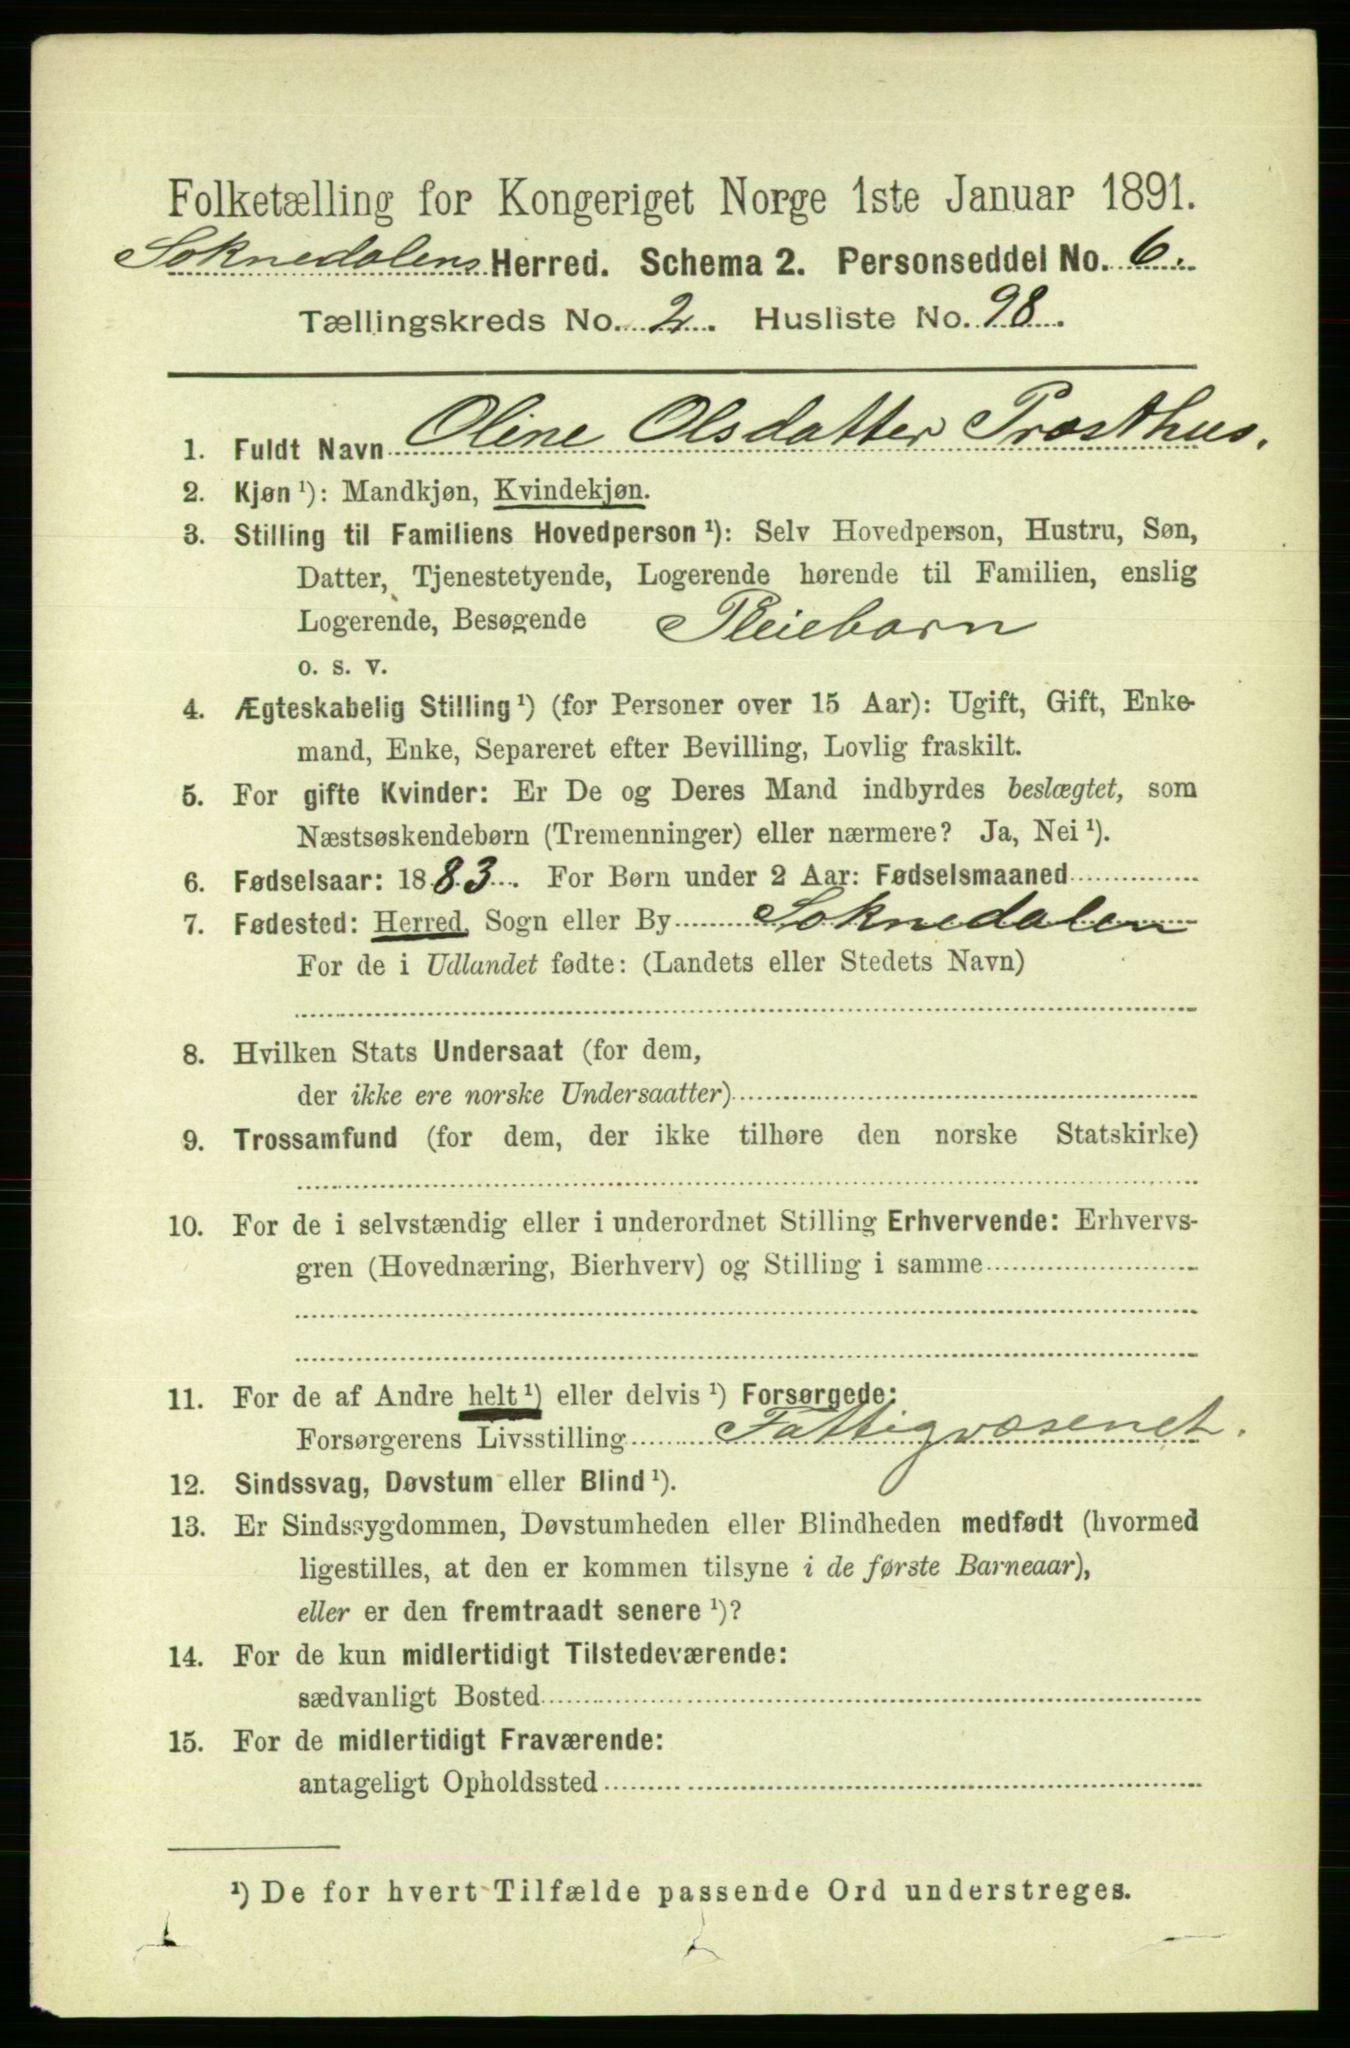 Folketælling for Kongeriget Norge 1ste Januar 1891.
Soknedalens Herred. Schema 2. Personseddel No. 6.
Tællingskreds No. 2. Husliste No. 98.
1. Fuldt Navn Oline Olsdatter Prosthus.
2. Kjøn ¹): Mandkjøn, Kvindekjøn.
3. Stilling til Familiens Hovedperson ¹): Selv Hovedperson, Hustru, Søn,
Datter, Tjenestetyende, Logerende hørende til Familien, enslig
Logerende, Besøgende Pleiebarn
o. s. v.
4. Ægteskabelig Stilling ¹) (for Personer over 15 Aar): Ugift, Gift, Enke-
mand, Enke, Separeret efter Bevilling, Lovlig fraskilt.
5. For gifte Kvinder: Er De og Deres Mand indbyrdes beslægtet, som
Næstsøskendebørn (Tremenninger) eller nærmere? Ja, Nei ¹).
6. Fødselsaar: 1883. For Børn under 2 Aar: Fødselsmaaned
7. Fødested: Herred, Sogn eller By Soknedalen
For de i Udlandet fødte: (Landets eller Stedets Navn)
8. Hvilken Stats Undersaat (for dem,
der ikke ere norske Undersaatter)
9. Trossamfund (for dem, der ikke tilhøre den norske Statskirke)
10. For de i selvstændig eller i underordnet Stilling Erhvervende: Erhvervs-
gren (Hovednæring, Bierhverv) og Stilling i samme
11. For de af Andre helt ¹) eller delvis ¹) Forsørgede:
Forsørgerens Livsstilling Fattigvæsenet.
12. Sindssvag, Døvstum eller Blind ¹).
13. Er Sindssygdommen, Døvstumheden eller Blindheden medfødt (hvormed
ligestilles, at den er kommen tilsyne i de første Barneaar),
eller er den fremtraadt senere ¹)?
14. For de kun midlertidigt Tilstedeværende:
sædvanligt Bosted
15. For de midlertidigt Fraværende:
antageligt Opholdssted
¹) De for hvert Tilfælde passende Ord understreges.